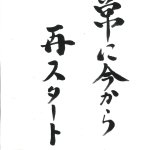 常に今から
再スタート